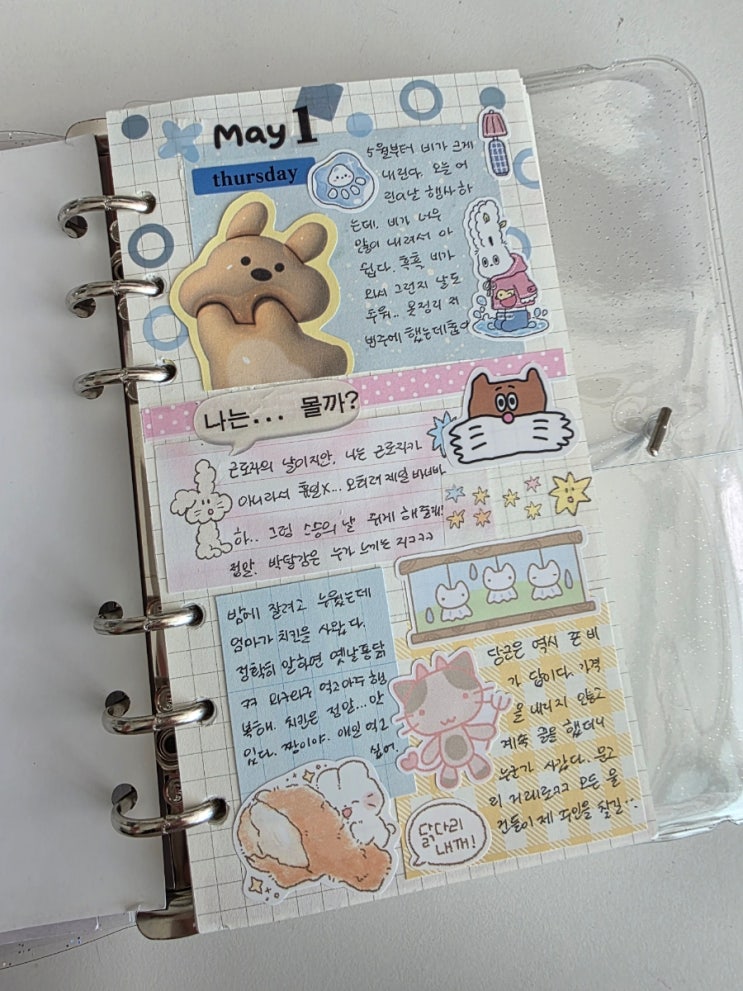 May 1
thursday
5월부터 비가 크게
내린다. 오늘 어
린이날 행사하
는데. 비가 너무
많이 내려서 아
쉽다. 흑흑 비가
와서 그런지 날도
추워.. 옷정리 저
번주에 했는데
나는... 몰까?
근로자의 날이지만, 나는 근로자가
아니라서 휴일X... 오히려 제일 바빠
하.. 그럼 스승의 날 쉬게 해줄래!
정말. 박탈감은 누가 느끼는 지ㅋㅋㅋ
밤에 잘려고 누웠는데
엄마가 치킨을 사왔다.
정확히 말하면 옛날통닭
ㅋㅋ 와구와구 먹고 아주 행
복해. 치킨은 정말... 맛
있다. 짱이야. 매일 먹고
싶어.
당근은 역시 존비
가 답이다. 가격
을 내리지 않고
계속 끌올 했더니
누군가 사갔다. 문고
리 거래로ㅋㅋ 모든 물
건들이 제 주인을 찾길...
닭다리
내꺼!